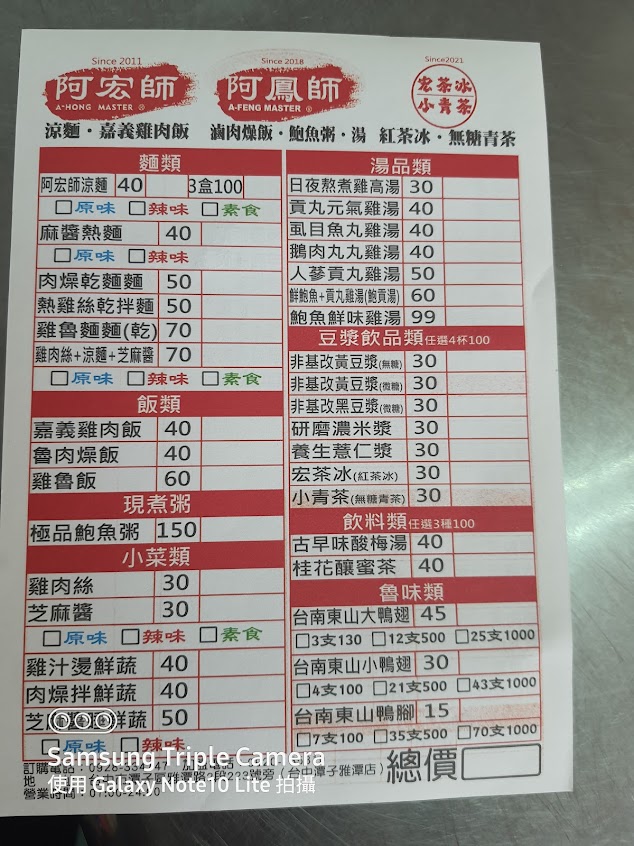 Since 2011
阿宏師
A-HONG MASTER ®
涼麵・嘉義雞肉飯
Since 2018
阿鳳師
A-FENG MASTER ®
滷肉燥飯・鮑魚粥・湯
Since2021
宏茶冰
小青茶
紅茶冰・無糖青茶
麵類
阿宏師涼麵 40 3盒100
□原味 □辣味 □素食
麻醬熱麵 40
□原味 □辣味
肉燥乾麵麵 50
熱雞絲乾拌麵 50
雞魯麵麵(乾) 70
雞肉絲+涼麵+芝麻醬 70
□原味 □辣味 □素食
飯類
嘉義雞肉飯 40
魯肉燥飯 40
雞魯飯 60
現煮粥
極品鮑魚粥 150
小菜類
雞肉絲 30
芝麻醬 30
□原味 □辣味 □素食
雞汁燙鮮蔬 40
肉燥拌鮮蔬 40
芝麻 鮮蔬 50
□原味 □辣味
湯品類
日夜熬煮雞高湯 30
貢丸元氣雞湯 40
虱目魚丸雞湯 40
鵝肉丸丸雞湯 40
人蔘貢丸雞湯 50
鮮鮑魚+貢丸雞湯(鮑貢湯) 60
鮑魚鮮味雞湯 99
豆漿飲品類任選4杯100
非基改黃豆漿(無糖) 30
非基改黃豆漿(微糖) 30
非基改黑豆漿(微糖) 30
研磨濃米漿 30
養生薏仁漿 30
宏茶冰(紅茶冰) 30
小青茶(無糖青茶) 30
飲料類任選3種100
古早味酸梅湯 40
桂花釀蜜茶 40
魯味類
台南東山大鴨翅 45
□3支130 □12支500 □25支1000
台南東山小鴨翅 30
□4支100 □21支500 □43支1000
台南東山鴨腳 15
□7支100 □35支500 □70支1000
總價
訂購電話：0928-334 47 加盟電話
地 台中市潭子區雅潭路2段233號旁（台中潭子雅潭店）
營業時間：07:00-24:00
Samsung Triple Camera
使用 Galaxy Note10 Lite 拍攝